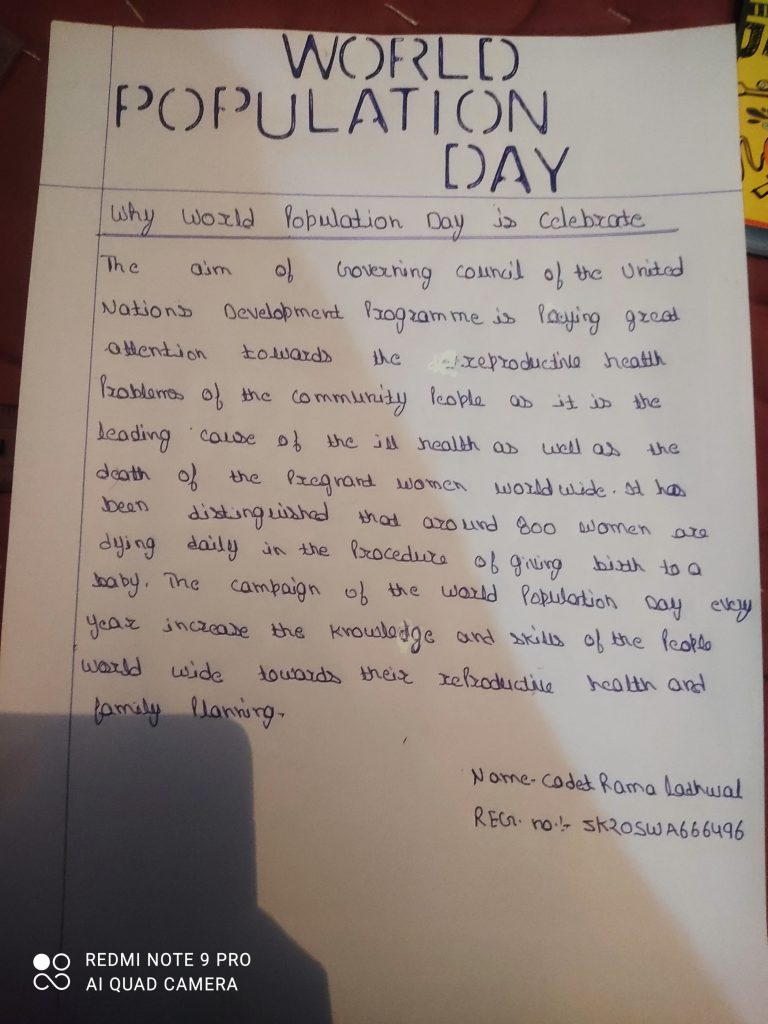 WORLD
POPULATION
DAY
Why World Population Day is Celebrate
The aim of Governing council of the United
Nations Development Programme is Paying great
attention towards the reproductive health
Problems of the community People as it is the
leading cause of the ill health as well as the
death of the Pregnant women worldwide. It has
been distinguished that around 800 women are
dying daily in the Procedure of giving birth to a
baby. The campaign of the world Population Day every
year increase the knowledge and skills of the People
world wide towards their reproductive health and
family Planning.
Name-Cadet Rama Ladhwal
REG. no:- SK20SWA666496
REDMI NOTE 9 PRO
AI QUAD CAMERA